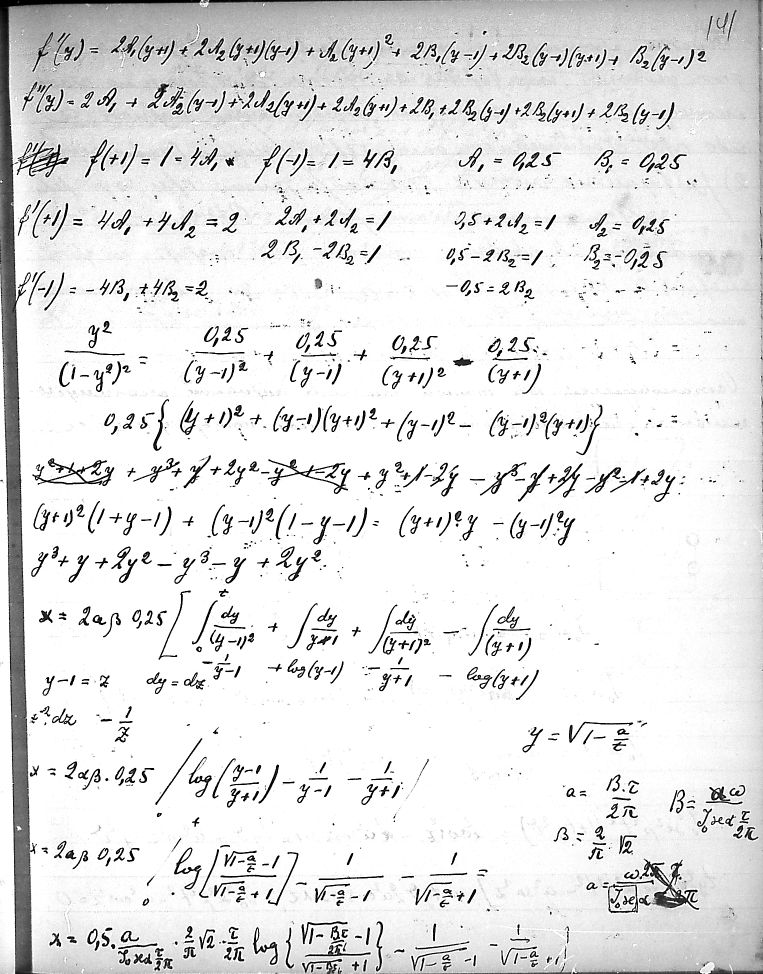 141
f'(y) = 2A₁(y+1) + 2A₂(y+1)(y-1) + A₂(y+1)² + 2B₁(y-1) + 2B₂(y-1)(y+1) + B₂(y-1)²
f''(y) = 2A₁ + 2A₂(y-1) + 2A₂(y+1) + 2A₂(y+1) + 2B₁ + 2B₂(y-1) + 2B₂(y+1) + 2B₂(y-1)
f(+1) = 1 = 4A₁ f(-1) = 1 = 4B₁ A₁ = 0,25 B₁ = 0,25
f'(+1) = 4A₁ + 4A₂ = 2 2A₁ + 2A₂ = 1 0,5 + 2A₂ = 1 A₂ = 0,25
2B₁ - 2B₂ = 1 0,5 - 2B₂ = 1 B₂ = -0,25
f'(-1) = -4B₁ + 4B₂ = 2 -0,5 = 2B₂
y²/(1-y²)² = 0,25/(y-1)² + 0,25/(y-1) + 0,25/(y+1)² - 0,25/(y+1)
0,25 { (y+1)² + (y-1)(y+1)² + (y-1)² - (y-1)²(y+1) }
y²+1+2y + y³ + y + 2y² - y² + - 2y + y² + 1 - 2y - y³ - y + 2y - y² - 1 + 2y
(y+1)²(1+y-1) + (y-1)²(1-y-1) = (y+1)² y - (y-1)² y
y³ + y + 2y² - y³ - y + 2y²
x = 2αβ 0,25 [ ∫₀ᵗ dy/(y-1)² + ∫ dy/y-1 + ∫ dy/(y+1)² - ∫ dy/(y+1)
- 1/y-1 + log(y-1) - 1/y+1 - log(y+1)
y-1 = z dy = dz
z⁻² dz - 1/z y = √1 - a/t
x = 2αβ . 0,25 / log(y-1/y+1) - 1/y-1 - 1/y+1 /
a = B.τ/2π
B = 2/π √2
x = 2αβ 0,25 / log [√1-a/t -1 / √1-a/t +1] - 1/√1-a/t -1 - 1/√1-a/t +1 =